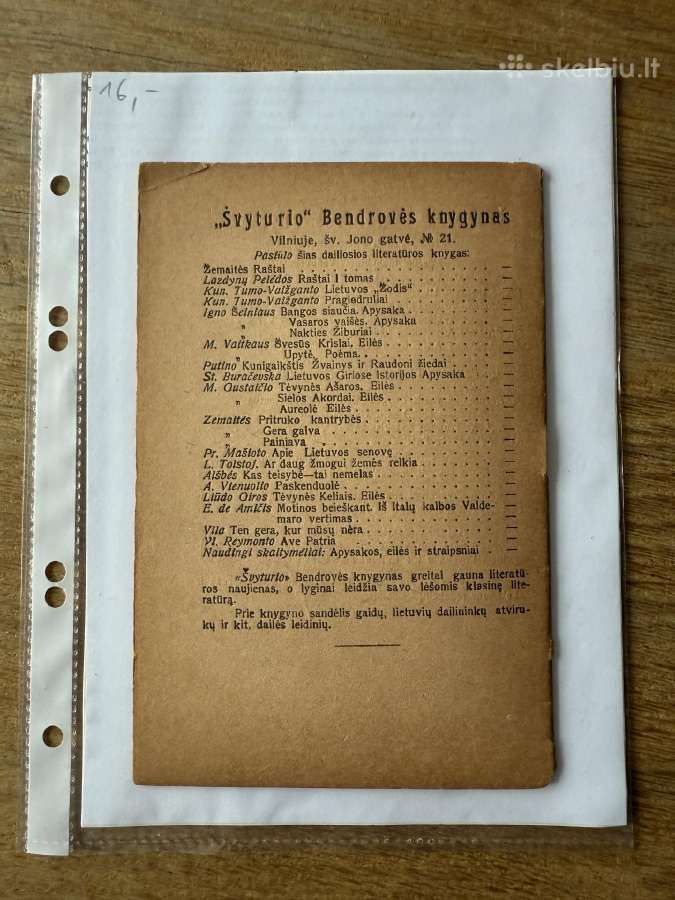 skelbiu.lt
16,-
„Švyturio“ Bendrovės knygynas
Vilniuje, šv. Jono gatvė, № 21.
Pasiūlo šias dailiosios literatūros knygas:
Žemaitės Raštai
Lazdynų Pelėdos Raštai I tomas
Kun. Tumo-Vaižganto Lietuvos „Žodis“
Kun. Tumo-Vaižganto Pragiedruliai
Igno Šeiniaus Bangos siaučia. Apysaka
„ Vasaros vaišės. Apysaka
„ Nakties Žiburiai
M. Vaitkaus Šviesūs Krislai. Eilės
„ Upytė, Poėma.
Putino Kunigaikštis Žvainys ir Raudoni žiedai
St. Buračevska Lietuvos Giriose Istorijos Apysaka
M. Gustaičio Tėvynės Ašaros. Eilės
„ Sielos Akordai. Eilės
„ Aureolė Eilės
Žemaitės Pritruko kantrybės
„ Gera galva
„ Painiava
Pr. Mašioto Apie Lietuvos senovę
L. Tolstoj. Ar daug žmogui žemės reikia
Aišbės Kas teisybė—tai nemelas
A. Vienuolio Paskenduolė
Liūdo Giros Tėvynės Keliais. Eilės
E. de Amičis Motinos beieškant. Iš italų kalbos Valde-
maro vertimas
Vila Ten gera, kur mūsų nėra
Vl. Reymonto Ave Patria
Naudingi skaitymėliai: Apysakos, eilės ir straipsniai
«Švyturio» Bendrovės knygynas greitai gauna literatū-
ros naujienas, o lyginai leidžia savo lėšomis klasinę lite-
ratūrą.
Prie knygyno sandėlis gaidų, lietuvių dailininkų atviru-
kų ir kit. dailės leidinių.